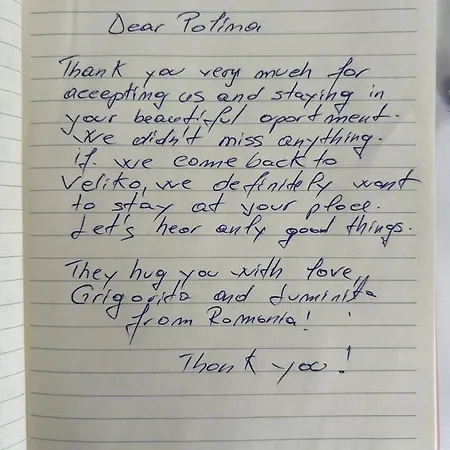 Dear Polina
Thank you very much for
accepting us and staying in
your beautiful apartment.
We didn't miss anything.
if we come back to
Veliko, we definitely want
to stay at your place.
Let's hear only good things.
They hug you with love,
Grigorita and Luminita
from Romania!
Thank you!